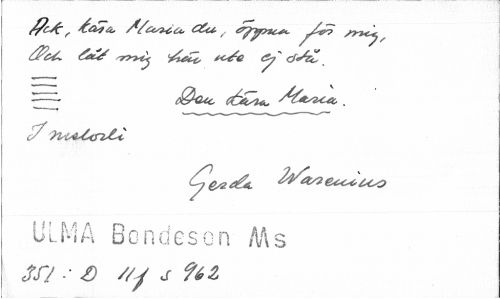 Ack, kära Maria du, öppna för mig,
Och låt mig här ute ej stå.
Den kära Maria.
1 melodi
Gerda Warenius
ULMA Bondeson Ms
351 : D 11f s 962